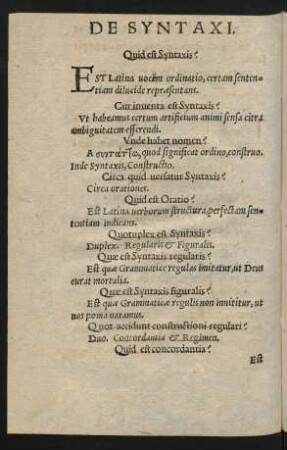 DE SYNTAXI.
Quid est Syntaxis?
EST Latina uocum ordinatio, certam senten-
tiam dilucide repræsentans.
Cur inuenta est Syntaxis?
Vt habeamus certum artificium animi sensa citra
ambiguitatem efferendi.
Vnde habet nomen?
A συντάττω, quod significat ordino, construo.
Inde Syntaxis, Constructio.
Circa quid uersatur Syntaxis?
Circa orationes.
Quid est Oratio?
Est Latina uerborum structura, perfectam sen-
tentiam indicans.
Quotuplex est Syntaxis?
Duplex. Regularis & Figuralis.
Quæ est Syntaxis regularis?
Est quæ Grammaticæ regulas imitatur, ut Deus
curat mortalia.
Quæ est Syntaxis figuralis?
Est quæ Grammaticæ regulis non innititur, ut
nos poma natamus.
Quot accidunt constructioni regulari?
Duo. Concordantia & Regimen.
Quid est concordantia?
Est